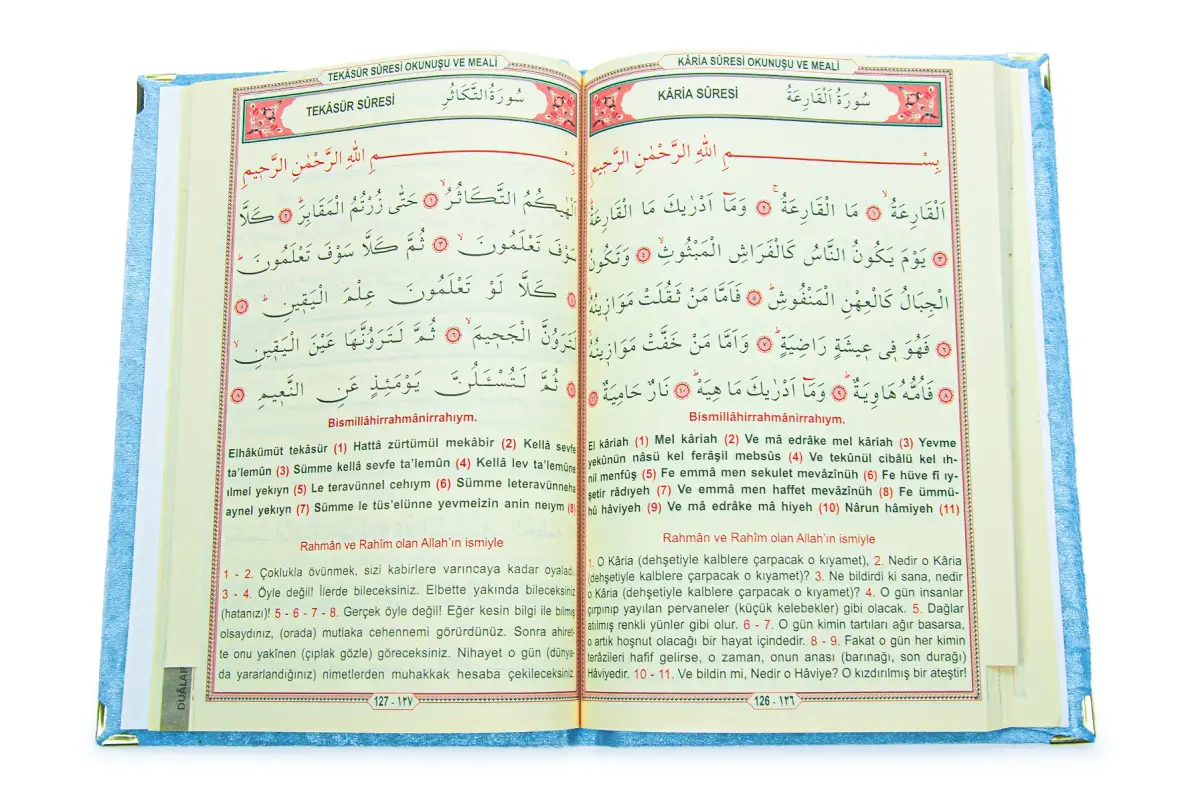 KÂRİA SÛRESİ OKUNUŞU VE MEALİ
KÂRİA SÛRESİ سُورَةُ الْقَارِعَةُ
بِسْمِ اللهِ الرَّحْمٰنِ الرَّحِيمِ
اَلْقَارِعَةُۙ ﴿١﴾ مَا الْقَارِعَةُۚ ﴿٢﴾ وَمَٓا اَدْرٰيكَ مَا الْقَارِعَةُۜ
﴿٣﴾ يَوْمَ يَكُونُ النَّاسُ كَالْفَرَاشِ الْمَبْثُوثِۙ ﴿٤﴾ وَتَكُونُ
الْجِبَالُ كَالْعِهْنِ الْمَنْفُوشِۜ ﴿٥﴾ فَاَمَّا مَنْ ثَقُلَتْ مَوَازِينُهُۙ
﴿٦﴾ فَهُوَ فِي عِيشَةٍ رَاضِيَةٍۜ ﴿٧﴾ وَاَمَّا مَنْ خَفَّتْ مَوَازِينُهُۙ
﴿٨﴾ فَاُمُّهُ هَاوِيَةٌۜ ﴿٩﴾ وَمَٓا اَدْرٰيكَ مَا هِيَهْۜ ﴿١٠﴾ نَارٌ حَامِيَةٌ ﴿١١﴾
Bismillâhirrahmânirrahıym.
El kâriah (1) Mel kâriah (2) Ve mâ edrâke mel kâriah (3) Yevme
yekûnün nâsü kel ferâşil mebsûs (4) Ve tekûnül cibâlü kel ıh-
nil menfûş (5) Fe emmâ men sekulet mevâzînüh (6) Fe hüve fî ıy-
şetir râdıyeh (7) Ve emmâ men haffet mevâzînüh (8) Fe ümmü-
hû hâviyeh (9) Ve mâ edrâke mâ hiyeh (10) Nârun hâmiyeh (11)
Rahmân ve Rahîm olan Allah'ın ismiyle
1. O Kâria (dehşetiyle kalblere çarpacak o kıyamet), 2. Nedir o Kâria
(dehşetiyle kalblere çarpacak o kıyamet)? 3. Ne bildirdi ki sana, nedir
o Kâria (dehşetiyle kalblere çarpacak o kıyamet)? 4. O gün insanlar
çırpınıp yayılan pervaneler (küçük kelebekler) gibi olacak. 5. Dağlar
atılmış renkli yünler gibi olur. 6 - 7. O gün kimin tartıları ağır basarsa,
o artık hoşnut olacağı bir hayat içindedir. 8 - 9. Fakat o gün her kimin
terâzileri hafif gelirse, o zaman, onun anası (barınağı, son durağı)
Hâviyedir. 10 - 11. Ve bildin mi, Nedir o Hâviye? O kızdırılmış bir ateştir!
126 - ١٢٦
TEKÂSÜR SÛRESİ OKUNUŞU VE MEALİ
TEKÂSÜR SÛRESİ سُورَةُ التَّكَاثُرِ
بِسْمِ اللهِ الرَّحْمٰنِ الرَّحِيمِ
اَلْهٰيكُمُ التَّكَاثُرُۙ ﴿١﴾ حَتّٰى زُرْتُمُ الْمَقَابِرَۜ ﴿٢﴾ كَلَّا
سَوْفَ تَعْلَمُونَۙ ﴿٣﴾ ثُمَّ كَلَّا سَوْفَ تَعْلَمُونَۜ
﴿٤﴾ كَلَّا لَوْ تَعْلَمُونَ عِلْمَ الْيَقِينِۜ ﴿٥﴾
لَتَرَوُنَّ الْجَحِيمَۙ ﴿٦﴾ ثُمَّ لَتَرَوُنَّهَا عَيْنَ الْيَقِينِۙ
﴿٧﴾ ثُمَّ لَتُسْـَٔلُنَّ يَوْمَئِذٍ عَنِ النَّعِيمِ ﴿٨﴾
Bismillâhirrahmânirrahıym.
Elhâkümüt tekâsür (1) Hattâ zürtümül mekâbir (2) Kellâ sevfe
ta'lemûn (3) Sümme kellâ sevfe ta'lemûn (4) Kellâ lev ta'lemûne
ılmel yekıyn (5) Le teravünnel cehıym (6) Sümme leteravünneha
aynel yekıyn (7) Sümme le tüs'elünne yevmeizin anin neıym (8)
Rahmân ve Rahîm olan Allah'ın ismiyle
1 - 2. Çoklukla övünmek, sizi kabirlere varıncaya kadar oyaladı.
3 - 4. Öyle değil! İlerde bileceksiniz. Elbette yakında bileceksiniz
(hatanızı)! 5 - 6 - 7 - 8. Gerçek öyle değil! Eğer kesin bilgi ile bilmiş
olsaydınız, (orada) mutlaka cehennemi görürdünüz. Sonra ahiret-
te onu yakînen (çıplak gözle) göreceksiniz. Nihayet o gün (dünya-
da yararlandığınız) nimetlerden muhakkak hesaba çekileceksiniz.
127 - ١٢٧
DUÂLAR